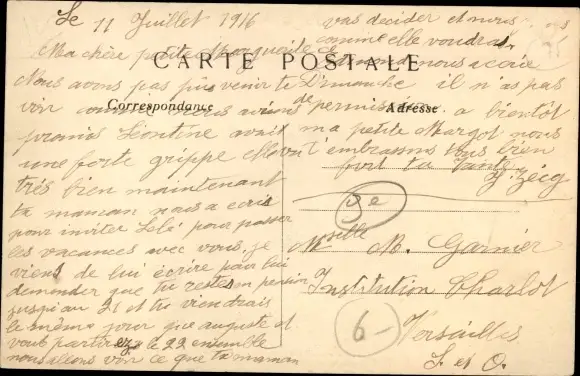 Le 11 Juillet 1916
Ma chère petite Marguerite
CARTE POSTALE
Correspondance
Adresse.
Nous avons pas pûs venir te
voir comme
promis Léontine avait
une forte grippe elle va
très bien maintenant
ta maman nous a écris
pour inviter Lélé pour passer
les vacances avec vous, je
viens de lui écrire pour lui
demander que tu restes en pension
jusqu'au 21 et tu viendrais
le même jour que auguste et
vous partirez le 22 ensemble
nous allons voir ce que ta maman
vas décider et nous
comme elle voudras
ce
Dimanche il n'as pas
de permission a bientôt
ma petite Margot nous
t'embrassons tous bien
fort ta
3e
Mselle M. Garnier
Institution Charlot
6
Versailles
S. et O.